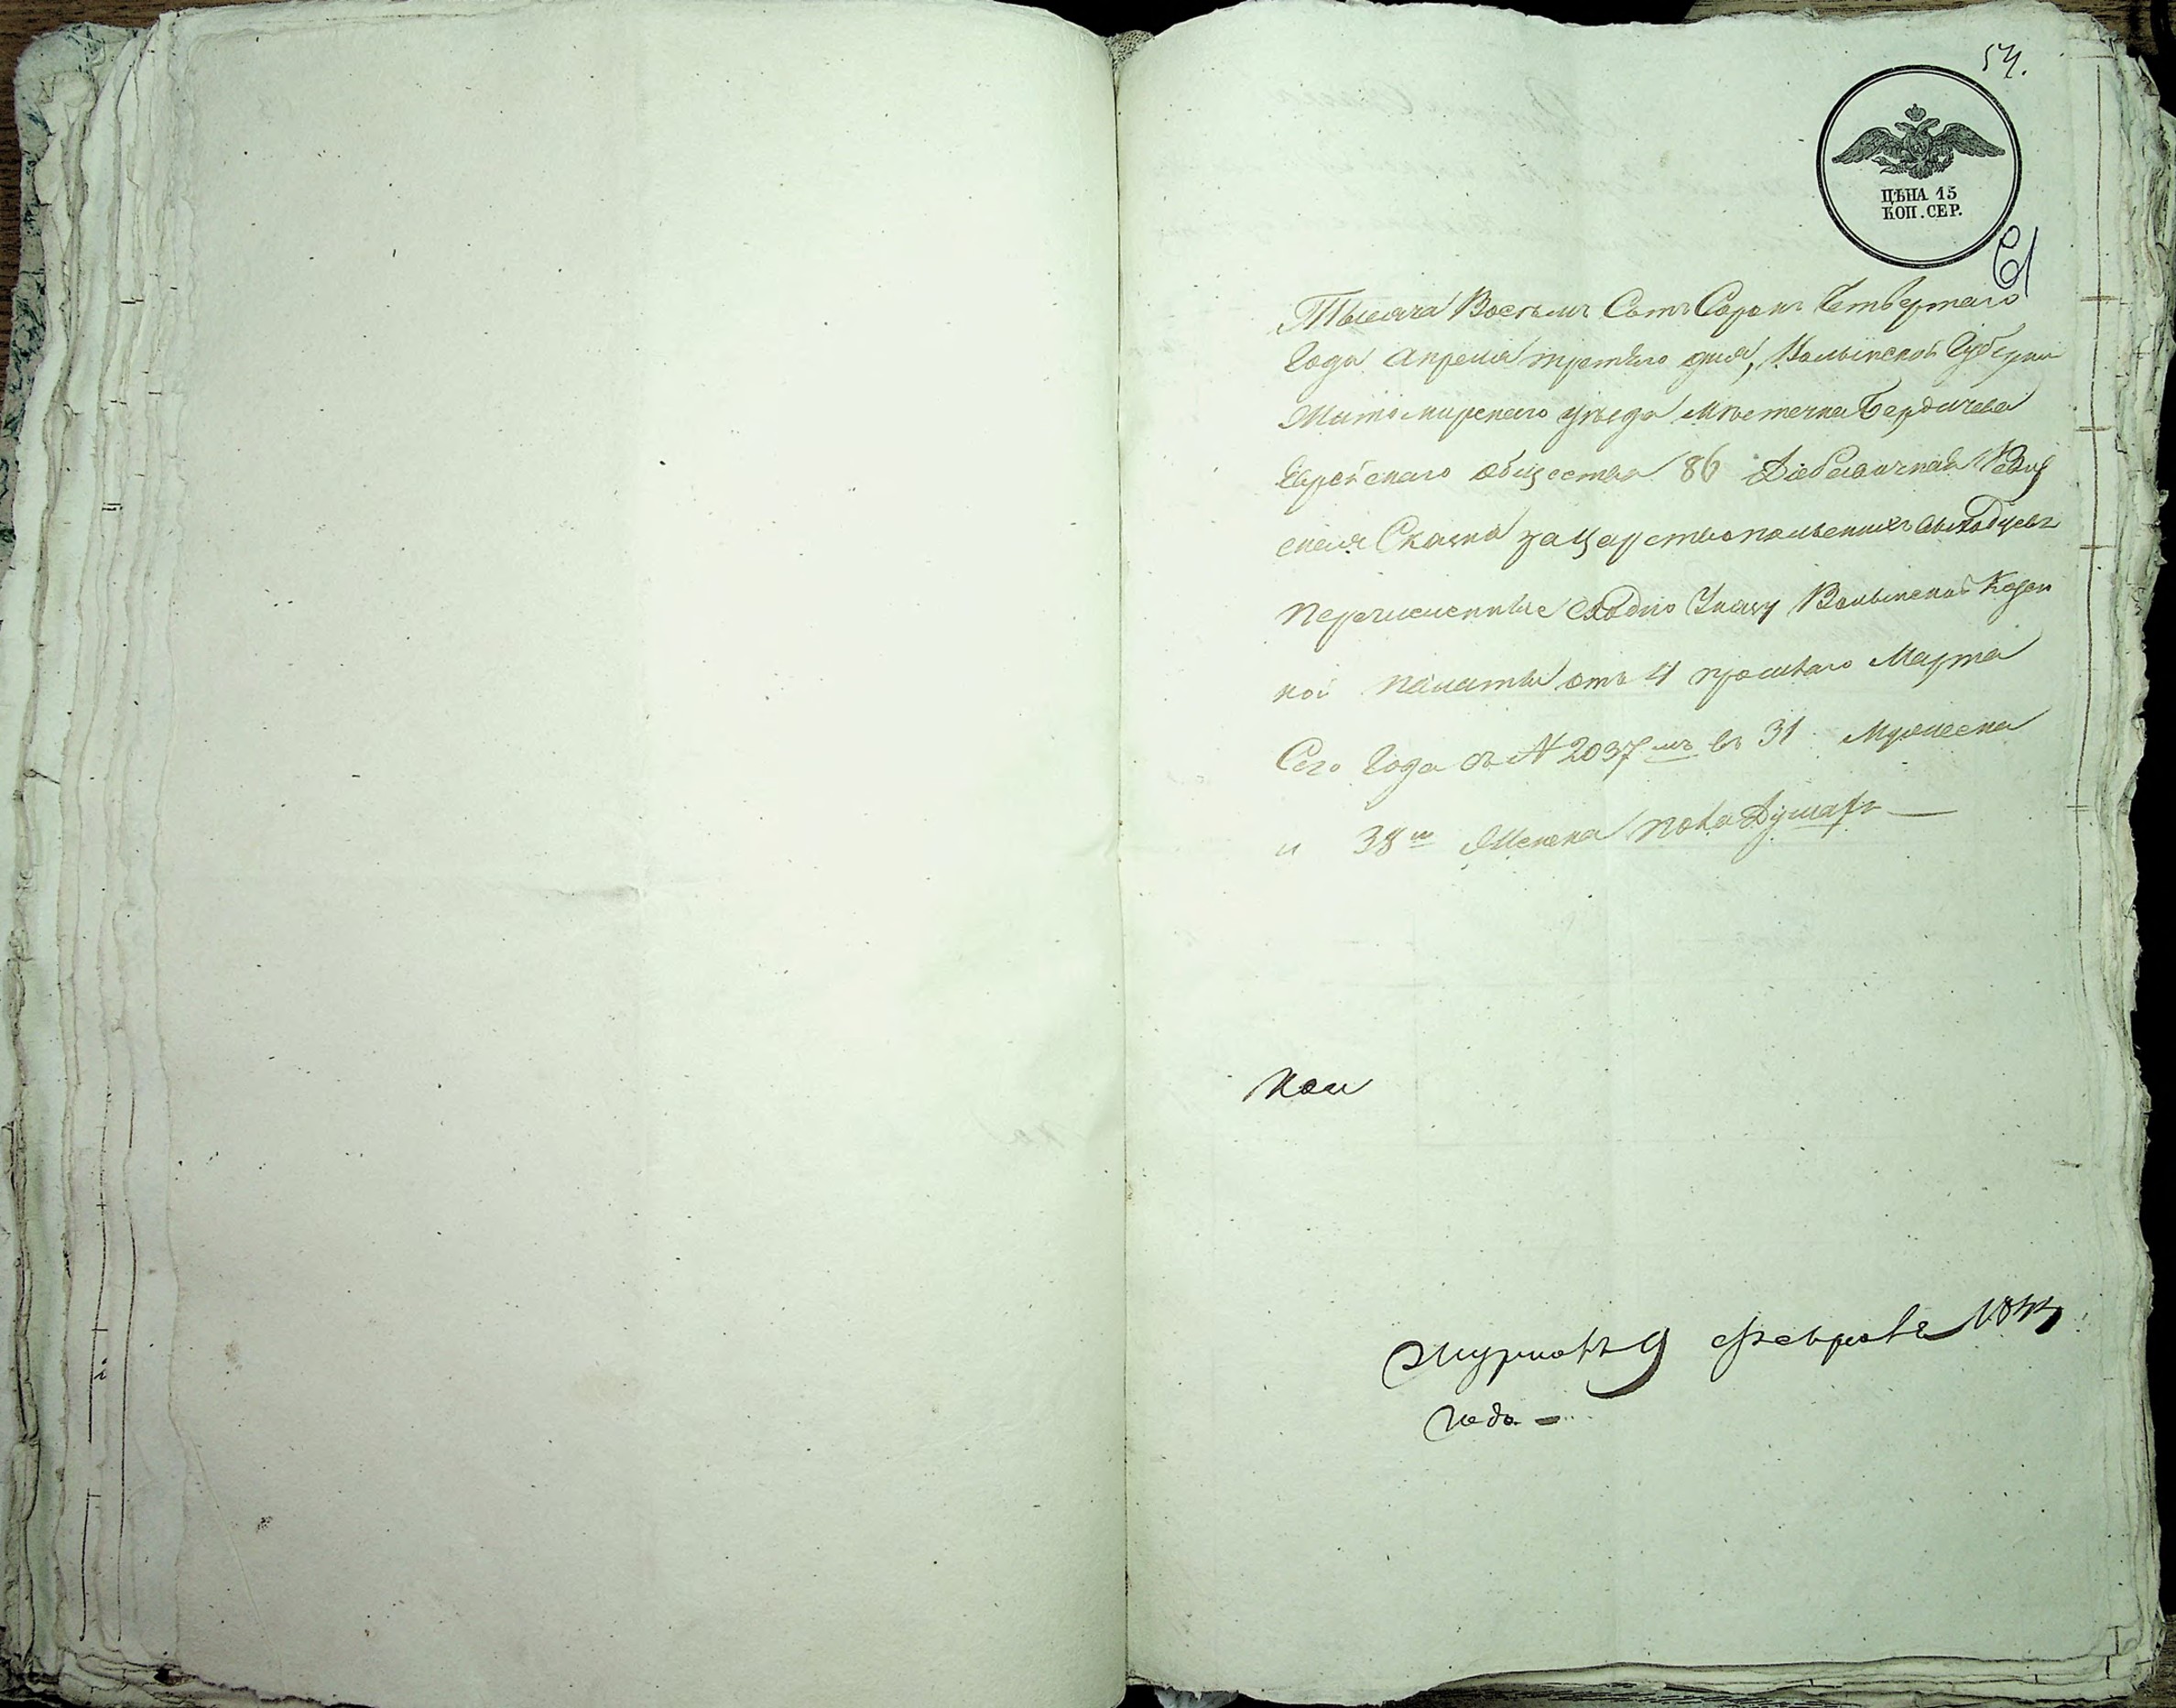 54.
ЦѢНА 15
КОП. СЕР.
61
Тысяча Восемь Сотъ Сорокъ Четвертаго
Года Апреля третьго дня, Волынской Губерни
Житомирскаго уѣзда мѣстечка Бердичева
Еврейскаго общества 86 Добавочная Ревиз
ская Скаска за Царствопольскихъ выходцевъ
перечисенные сходно Указу Волынской Казен
ной палаты отъ 4 прошлаго Марта
Сего Года за № 2037 мъ въ 31 Мужеска
и 38 м Женска пола Душахъ
Журналъ 9 февраля 1844
года